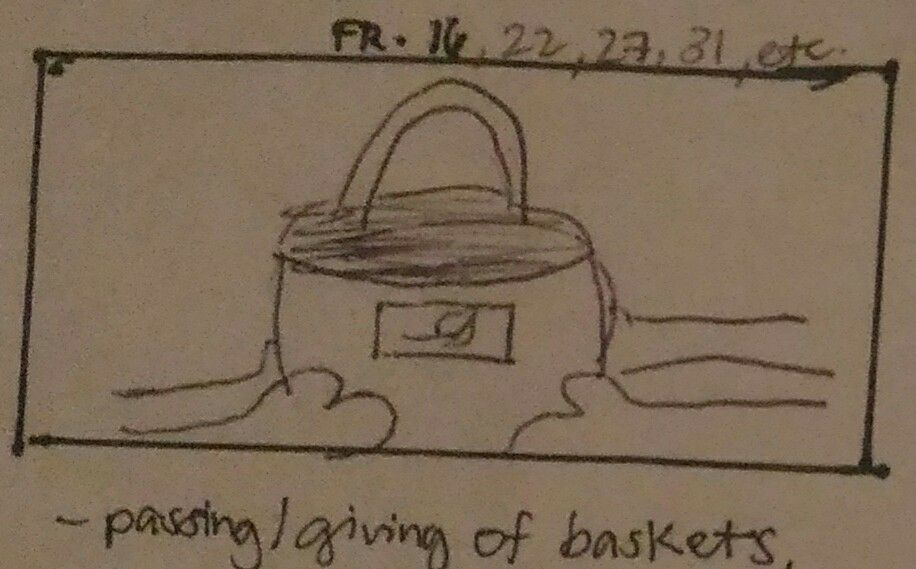 FR. 16, 22, 27, 31, etc.
- passing/giving of baskets.